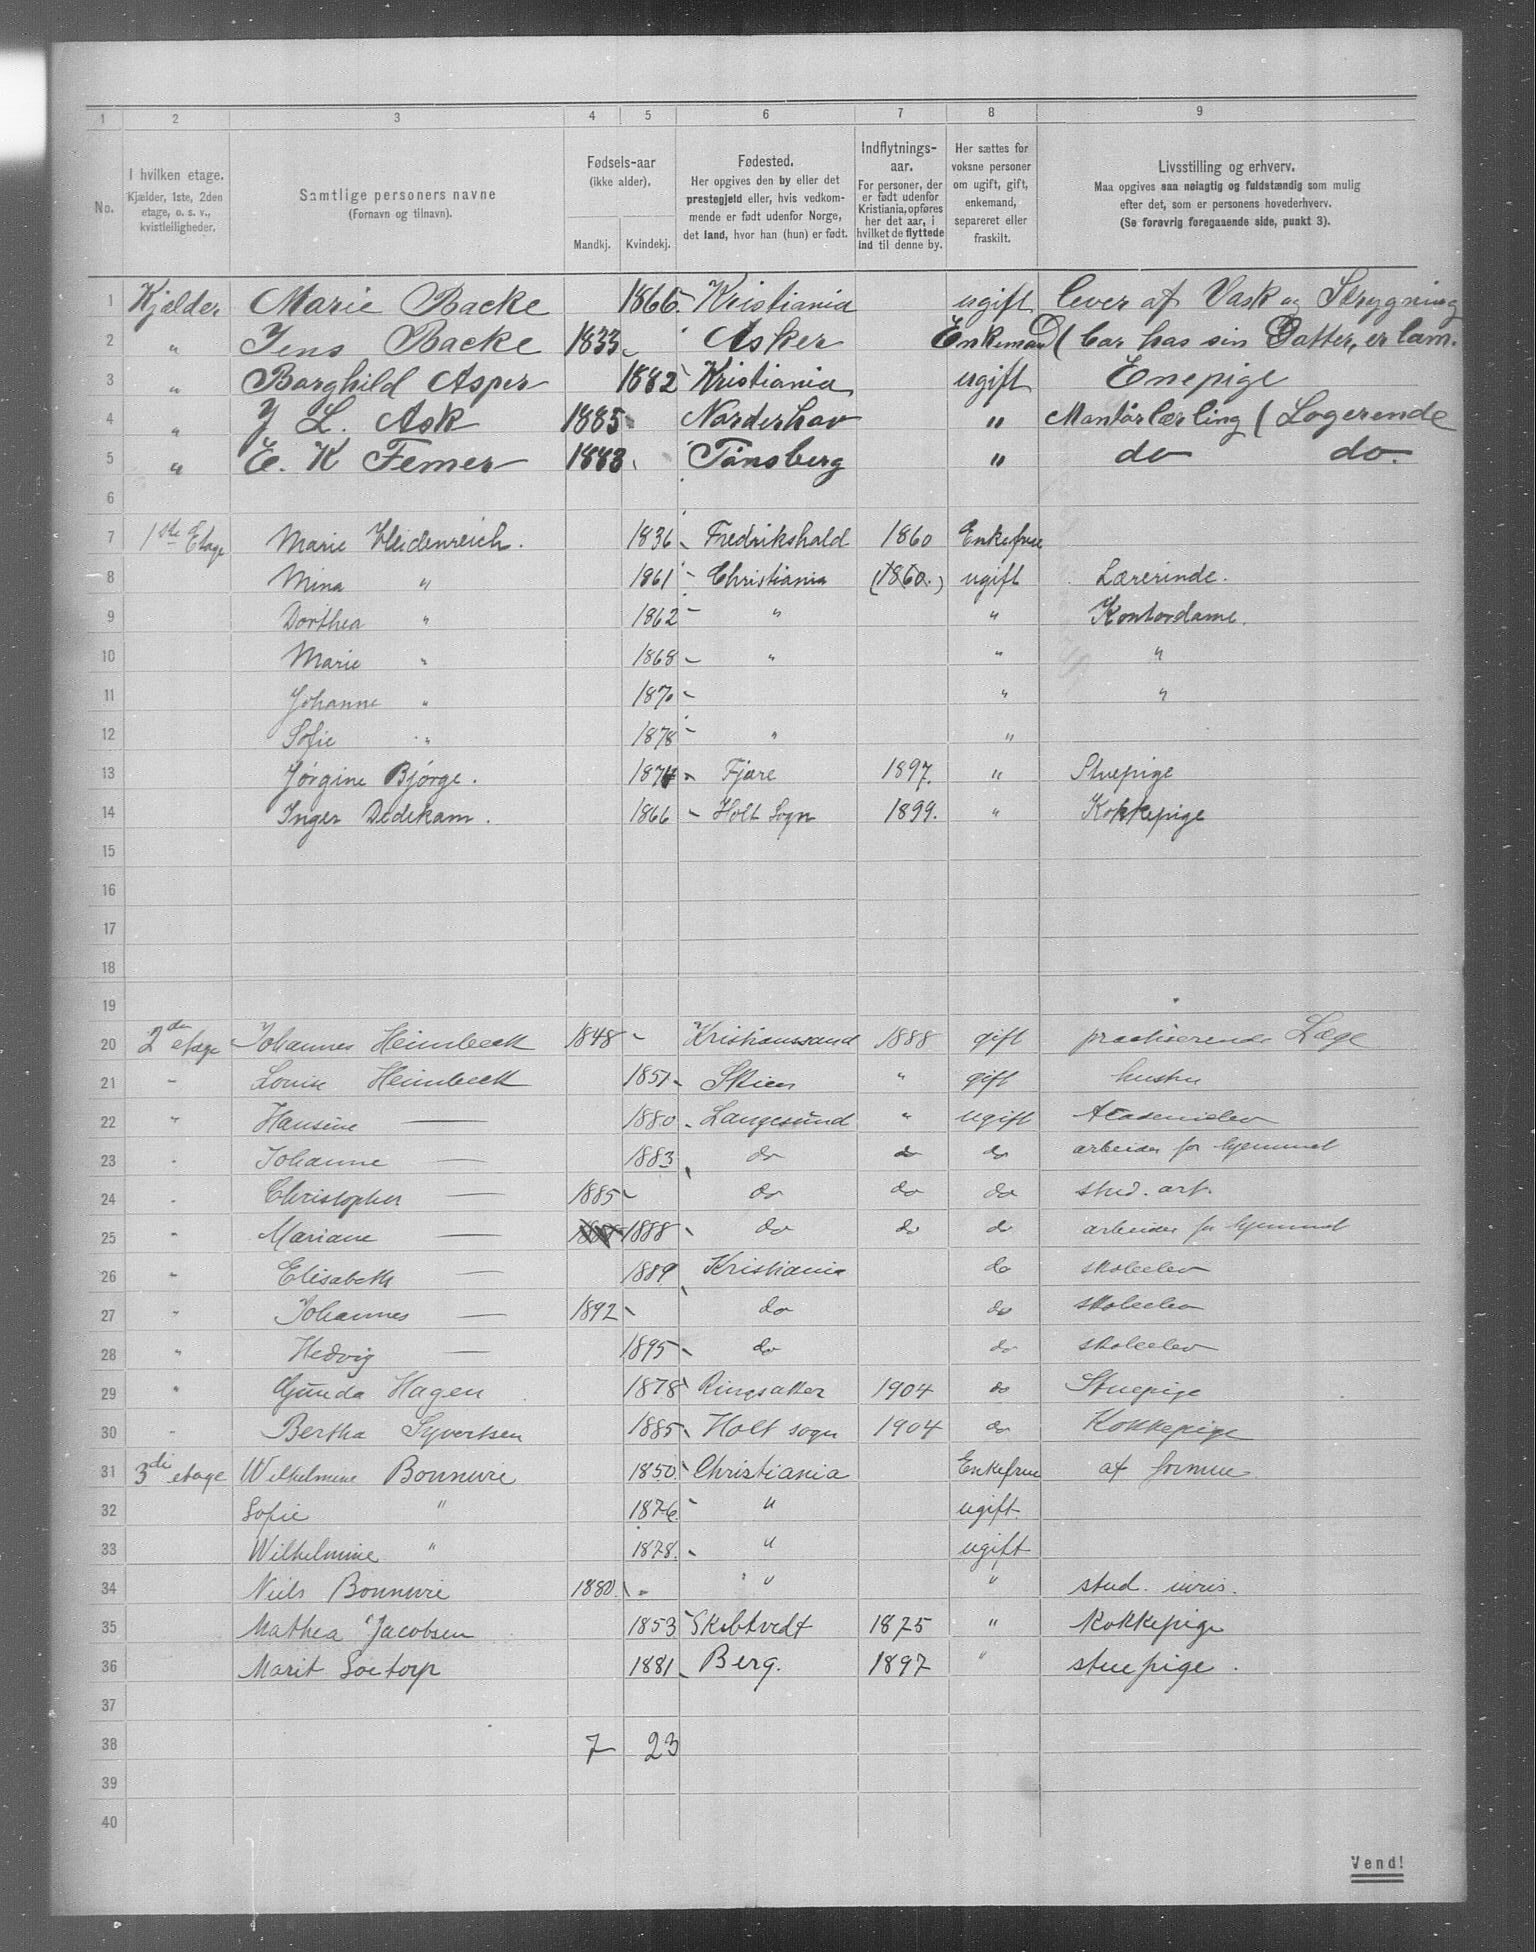 1 2 3 4 5 6 7 8 9
No.
I hvilken etage.
Kjælder, 1ste, 2den
etage, o. s. v.,
kvistleiligheder.
Samtlige personers navne
(Fornavn og tilnavn).
Fødsels-aar
(ikke alder).
Mandkj. Kvindekj.
Fødested.
Her opgives den by eller det
prestegjeld eller, hvis vedkom-
mende er født udenfor Norge,
det land, hvor han (hun) er født.
Indflytnings-
aar.
For personer, der
er født udenfor
Kristiania, opføres
her det aar, i
hvilket de flyttede
ind til denne by.
Her sættes for
voksne personer
om ugift, gift,
enkemand,
separeret eller
fraskilt.
Livsstilling og erhverv.
Maa opgives saa nøiagtig og fuldstændig som mulig
efter det, som er personens hovederhverv.
(Se forøvrig foregaaende side, punkt 3).
1 Kjælder Marie Backe 1866 Kristiania ugift lever af Vask og Strygning
2 " Jens Backe 1833 Asker Enkemand (bor hos sin Datter, er lam.
3 " Borghild Asper 1882 Kristiania ugift Enepige
4 " J L. Ask 1885 Norderhov " Mantørlærling (Logerende
5 " E. K Femer 1883 Tønsberg " do do.
6
7 1ste Etage Marie Heidenreich. 1836 Fredrikshald 1860 Enkefrue
8 Mina " 1861 Christiania (1860.) ugift Lærerinde.
9 Dorthea " 1862 " " Kontordame.
10 Marie " 1868 " " "
11 Johanne " 1870 " "
12 Sofie " 1878 " "
13 Jørgine Bjørge. 1874 Fjære 1897. " Stuepige
14 Inger Dedekam. 1866 Holt Sogn 1899. " Kokkepige
15
16
17
18
19
20 2den etage Johannes Heimbeck 1848 Kristianssand 1888 gift practiserende Læge
21 " Louise Heimbeck 1851 Skien " gift hustru
22 " Hansine — 1880 Langesund " ugift
23 " Johanne — 1883 do do do arbeider for hjemmet
24 " Christopher — 1885 do do do stud. art.
25 " Mariane — 1888 do do do arbeider for hjemmet
26 " Elisabeth — 1889 Kristiania do skoleelev
27 " Johannes — 1892 do do skoleelev
28 " Hedvig — 1895 do do skoleelev
29 " Gunda Hagen 1878 Ringsaker 1904 do Stuepige
30 " Bertha Syvertsen 1885 Holt sogn 1904 do Kokkepige
31 3die etage Wilhelmine Bonnevie 1850 Christiania Enkefrue af formue
32 Sofie " 1876. " ugift
33 Wilhelmine " 1878. " ugift
34 Niels Bonnevie 1880. " " stud. iuris.
35 Mathea Jacobsen 1853 Skibtvedt 1875 " Kokkepige
36 Marit Soetorp 1881 Berg. 1897 " stuepige.
37
38 7 23
39
40
Vend!